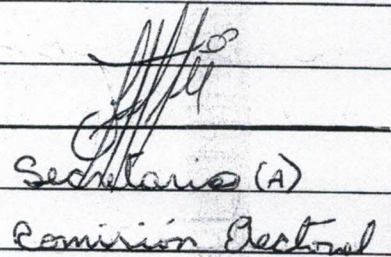 Secretario (A)
Comisión Electoral